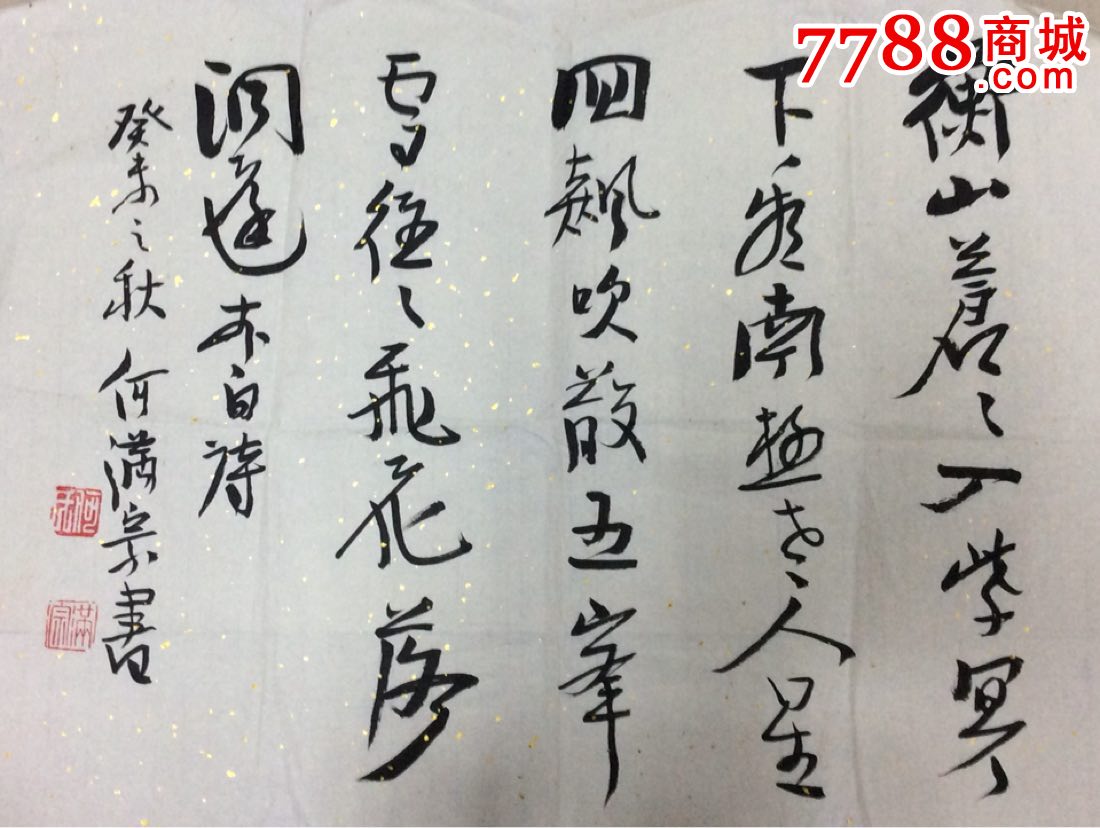 7788商城
.com
衡山蒼々入紫冥
下看南極老人星
回飆吹散五峯
雪往々飛花落
洞庭李白詩
癸未之秋 何满宗書
满宗